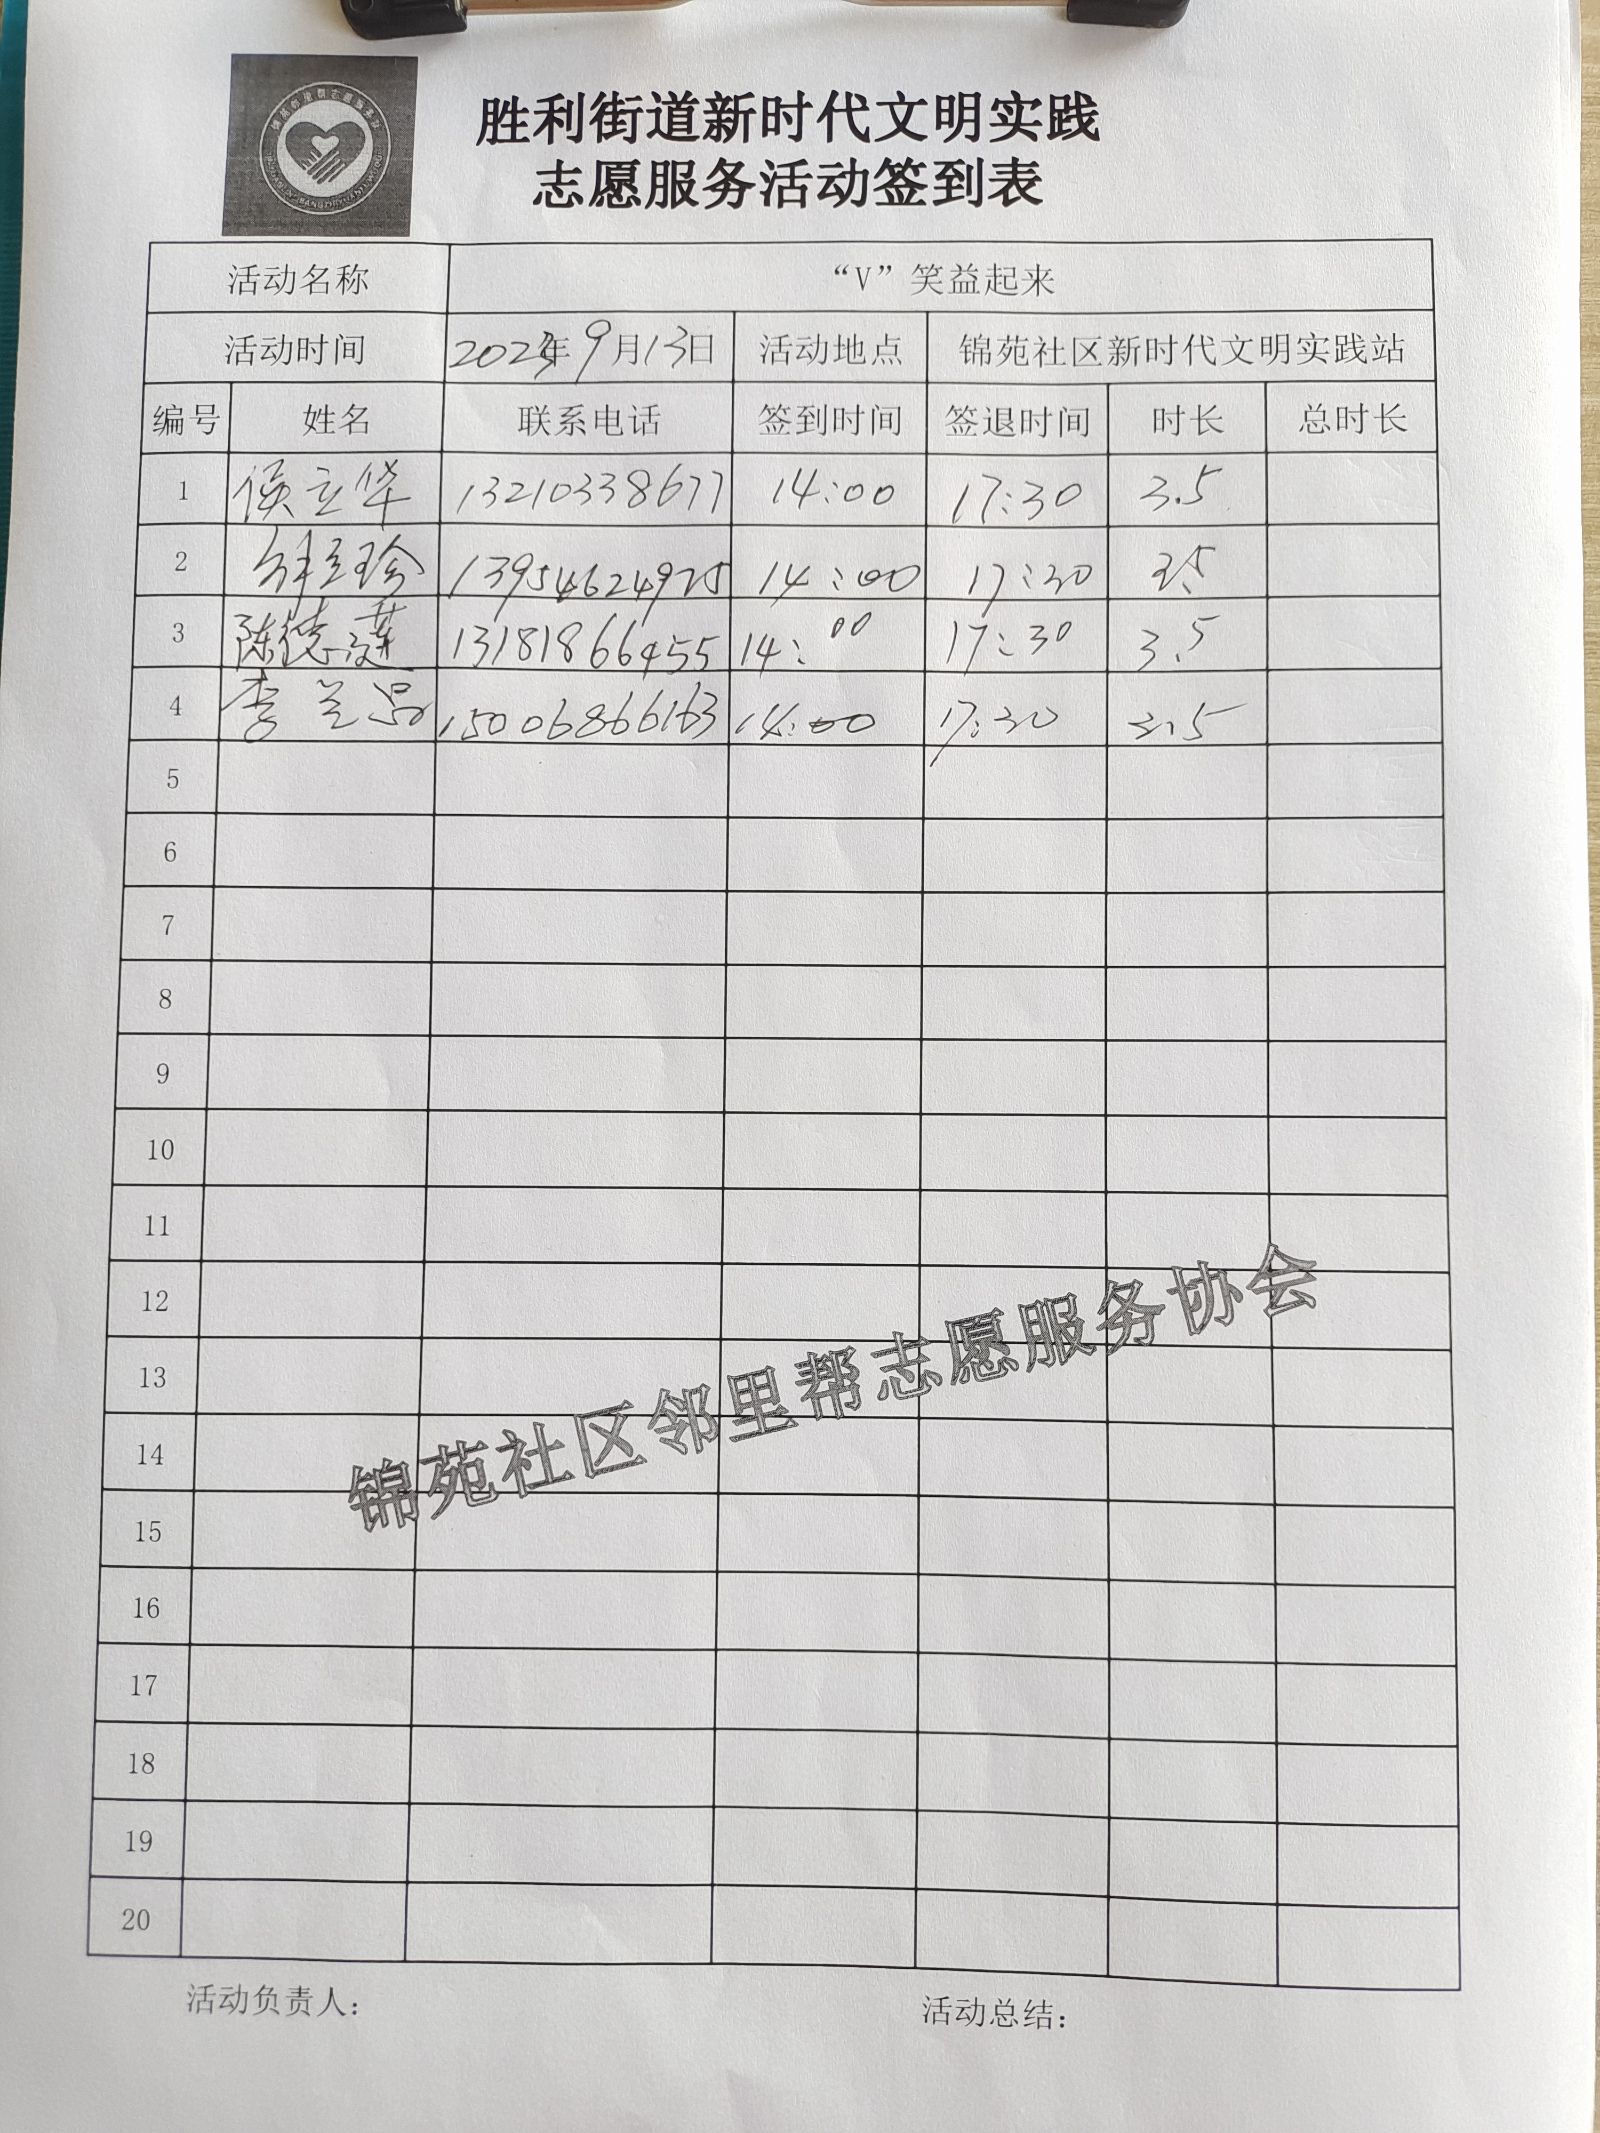 胜利街道新时代文明实践
志愿服务活动签到表
活动名称 “V”笑益起来
活动时间 2023年9月13日 活动地点 锦苑社区新时代文明实践站
编号 姓名 联系电话 签到时间 签退时间 时长 总时长
1 侯立华 13210338677 14:00 17:30 3.5
2 珍 13954624925 14:00 17:30 3.5
3 陈德莲 13181866455 14:00 17:30 3.5
4 李兰 15006866163 14:00 17:30 3.5
5
6
7
8
9
10
11
12
13
14
15
16
17
18
19
20
锦苑社区邻里帮志愿服务协会
活动负责人: 活动总结: